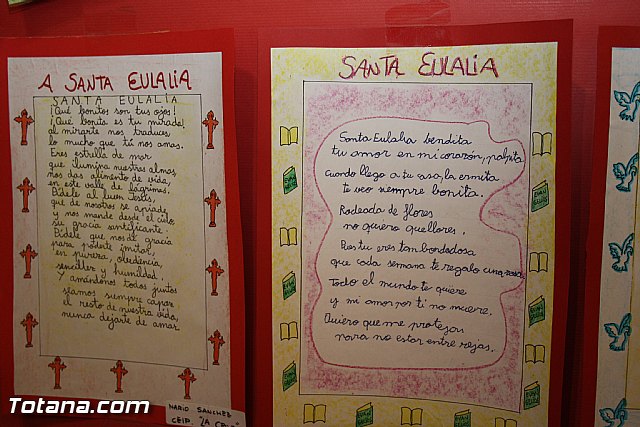 A SANTA EULALIA
SANTA EULALIA
¡Qué bonitos son tus ojos!
¡Qué bonita es tu mirada!
al mirarte nos traduces
lo mucho que tú nos amas.
Eres estrella de mar
que ilumina nuestras almas,
nos das alimento de vida,
en este valle de lágrimas.
Pídele al buen Jesús,
que de nosotros se apiade
y nos mande desde el cielo
su gracia santificante.
Pídele que nos dé gracia
para poderte imitar,
en pureza, obediencia,
sencillez y humildad.
Y amándonos todos juntos
seamos siempre capaz
el resto de nuestra vida,
nunca dejarte de amar.
MARIO SANCHEZ
CEIP "LA
SANTA EULALIA
Santa Eulalia bendita
tu amor en mi corazón, palpita
Cuando llego a tu casa, la ermita
te veo siempre bonita.
Rodeada de flores
no quiero que llores.
Pues tu eres tan bondadosa
que cada semana te regalo una rosa
Todo el mundo te quiere
y mi amor por ti no muere.
Quiero que me protejas
para no estar entre rejas.
Totana.com